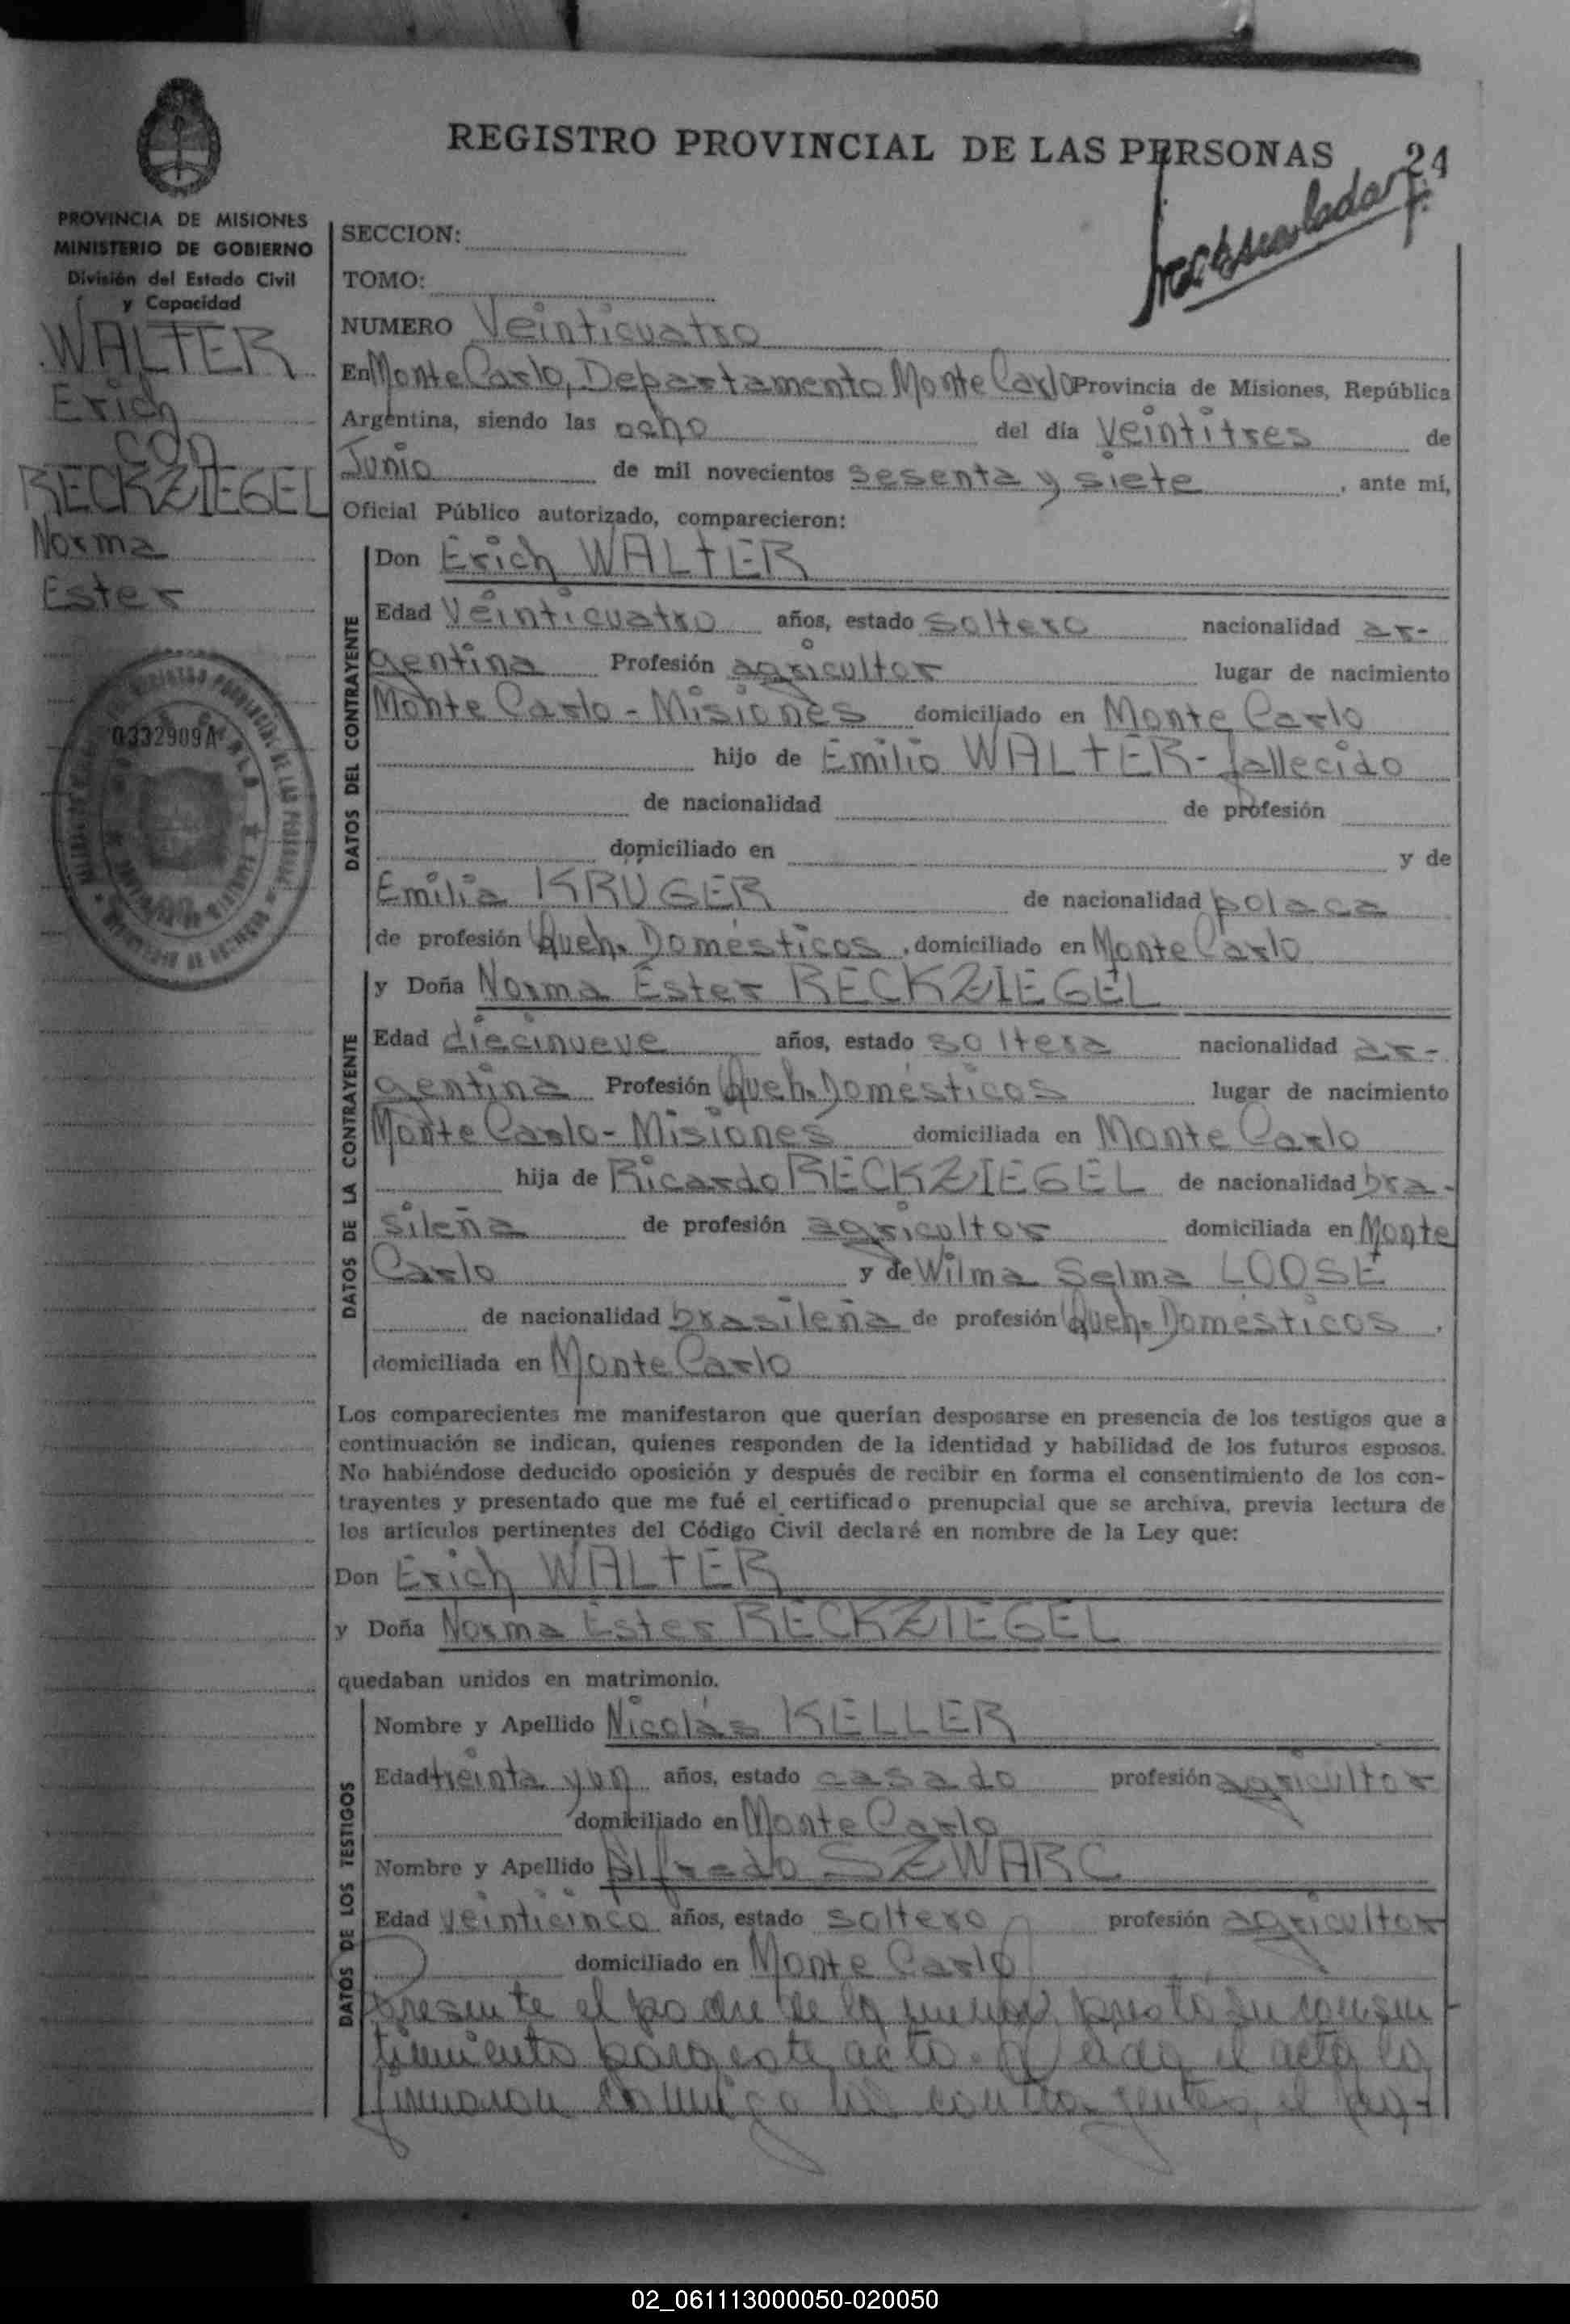 REGISTRO PROVINCIAL DE LAS PERSONAS
24
PROVINCIA DE MISIONES
MINISTERIO DE GOBIERNO
División del Estado Civil
y Capacidad
WALTER
Erich
con
RECKZIEGEL
Norma
Ester
0332909A
SECCION:
TOMO:
NUMERO Veinticuatro
En Monte Carlo, Departamento Monte Carlo Provincia de Misiones, República
Argentina, siendo las ocho del día veintitres de
Junio de mil novecientos sesenta y siete, ante mí,
Oficial Público autorizado, comparecieron:
DATOS DEL CONTRAYENTE
Don Erich WALTER
Edad Veinticuatro años, estado soltero nacionalidad ar-
gentina Profesión agricultor lugar de nacimiento
Monte Carlo - Misiones domiciliado en Monte Carlo
hijo de Emilio WALTER - fallecido
de nacionalidad de profesión
domiciliado en y de
Emilia KRÜGER de nacionalidad polaca
de profesión Queh. Domésticos, domiciliado en Monte Carlo
DATOS DE LA CONTRAYENTE
y Doña Norma Ester RECKZIEGEL
Edad diecinueve años, estado soltera nacionalidad ar-
gentina Profesión Queh. Domésticos lugar de nacimiento
Monte Carlo - Misiones domiciliada en Monte Carlo
hija de Ricardo RECKZIEGEL de nacionalidad bra-
sileña de profesión agricultor domiciliada en Monte
Carlo y de Wilma Selma LOOSE
de nacionalidad brasileña de profesión Queh. Domésticos.
domiciliada en Monte Carlo
Los comparecientes me manifestaron que querían desposarse en presencia de los testigos que a
continuación se indican, quienes responden de la identidad y habilidad de los futuros esposos.
No habiéndose deducido oposición y después de recibir en forma el consentimiento de los con-
trayentes y presentado que me fué el certificado prenupcial que se archiva, previa lectura de
los artículos pertinentes del Código Civil declaré en nombre de la Ley que:
Don Erich WALTER
y Doña Norma Ester RECKZIEGEL
quedaban unidos en matrimonio.
DATOS DE LOS TESTIGOS
Nombre y Apellido Nicolás KELLER
Edad treinta y un años, estado casado profesión agricultor
domiciliado en Monte Carlo
Nombre y Apellido Alfredo SZWARC
Edad veinticinco años, estado soltero profesión agricultor
domiciliado en Monte Carlo
Presente el padre de la menor, prestó su consen
timiento para este acto. Leída el acta la
firmaron conmigo los contrayentes, el
02_061113000050-020050